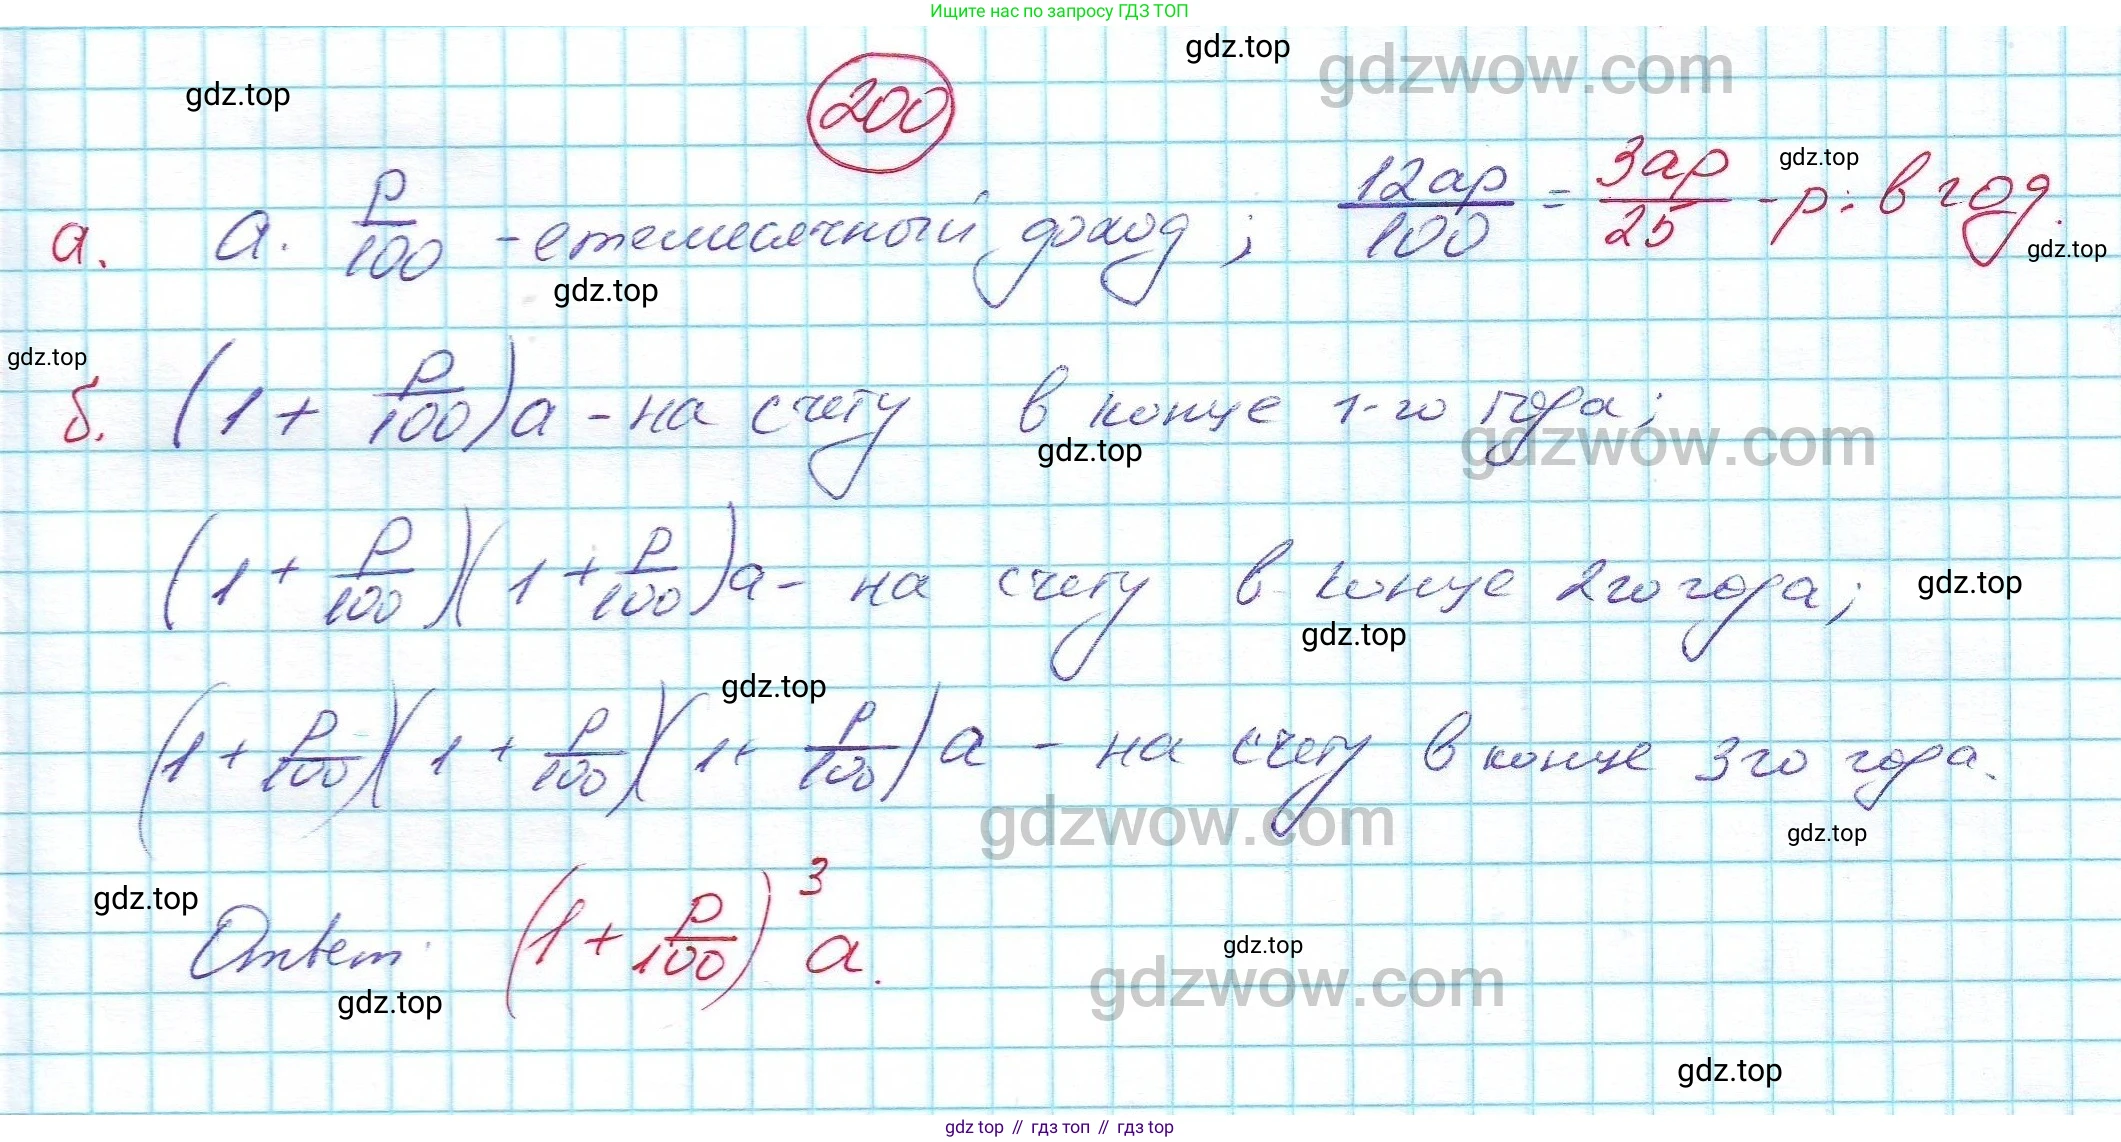 Ищите нас по запросу ГДЗ ТОП
gdz.top
gdzwow.com
gdz.top
200
gdz.top
а. a · p/100 - ежемесячный доход; 12ap/100 = 3ap/25 - р: в год.
gdz.top
gdz.top
gdz.top
б. (1 + p/100)a - на счету в конце 1-го года;
gdz.top
gdzwow.com
(1 + p/100)(1 + p/100)a - на счету в конце 2го года;
gdz.top
gdz.top
gdz.top
(1 + p/100)(1 + p/100)(1 + p/100)a - на счету в конце 3го года.
gdzwow.com
gdz.top
gdz.top
Ответ. (1 + p/100)³ a.
gdz.top
gdzwow.com
gdz.top
gdz.top
gdz top // гдз топ // гдз top